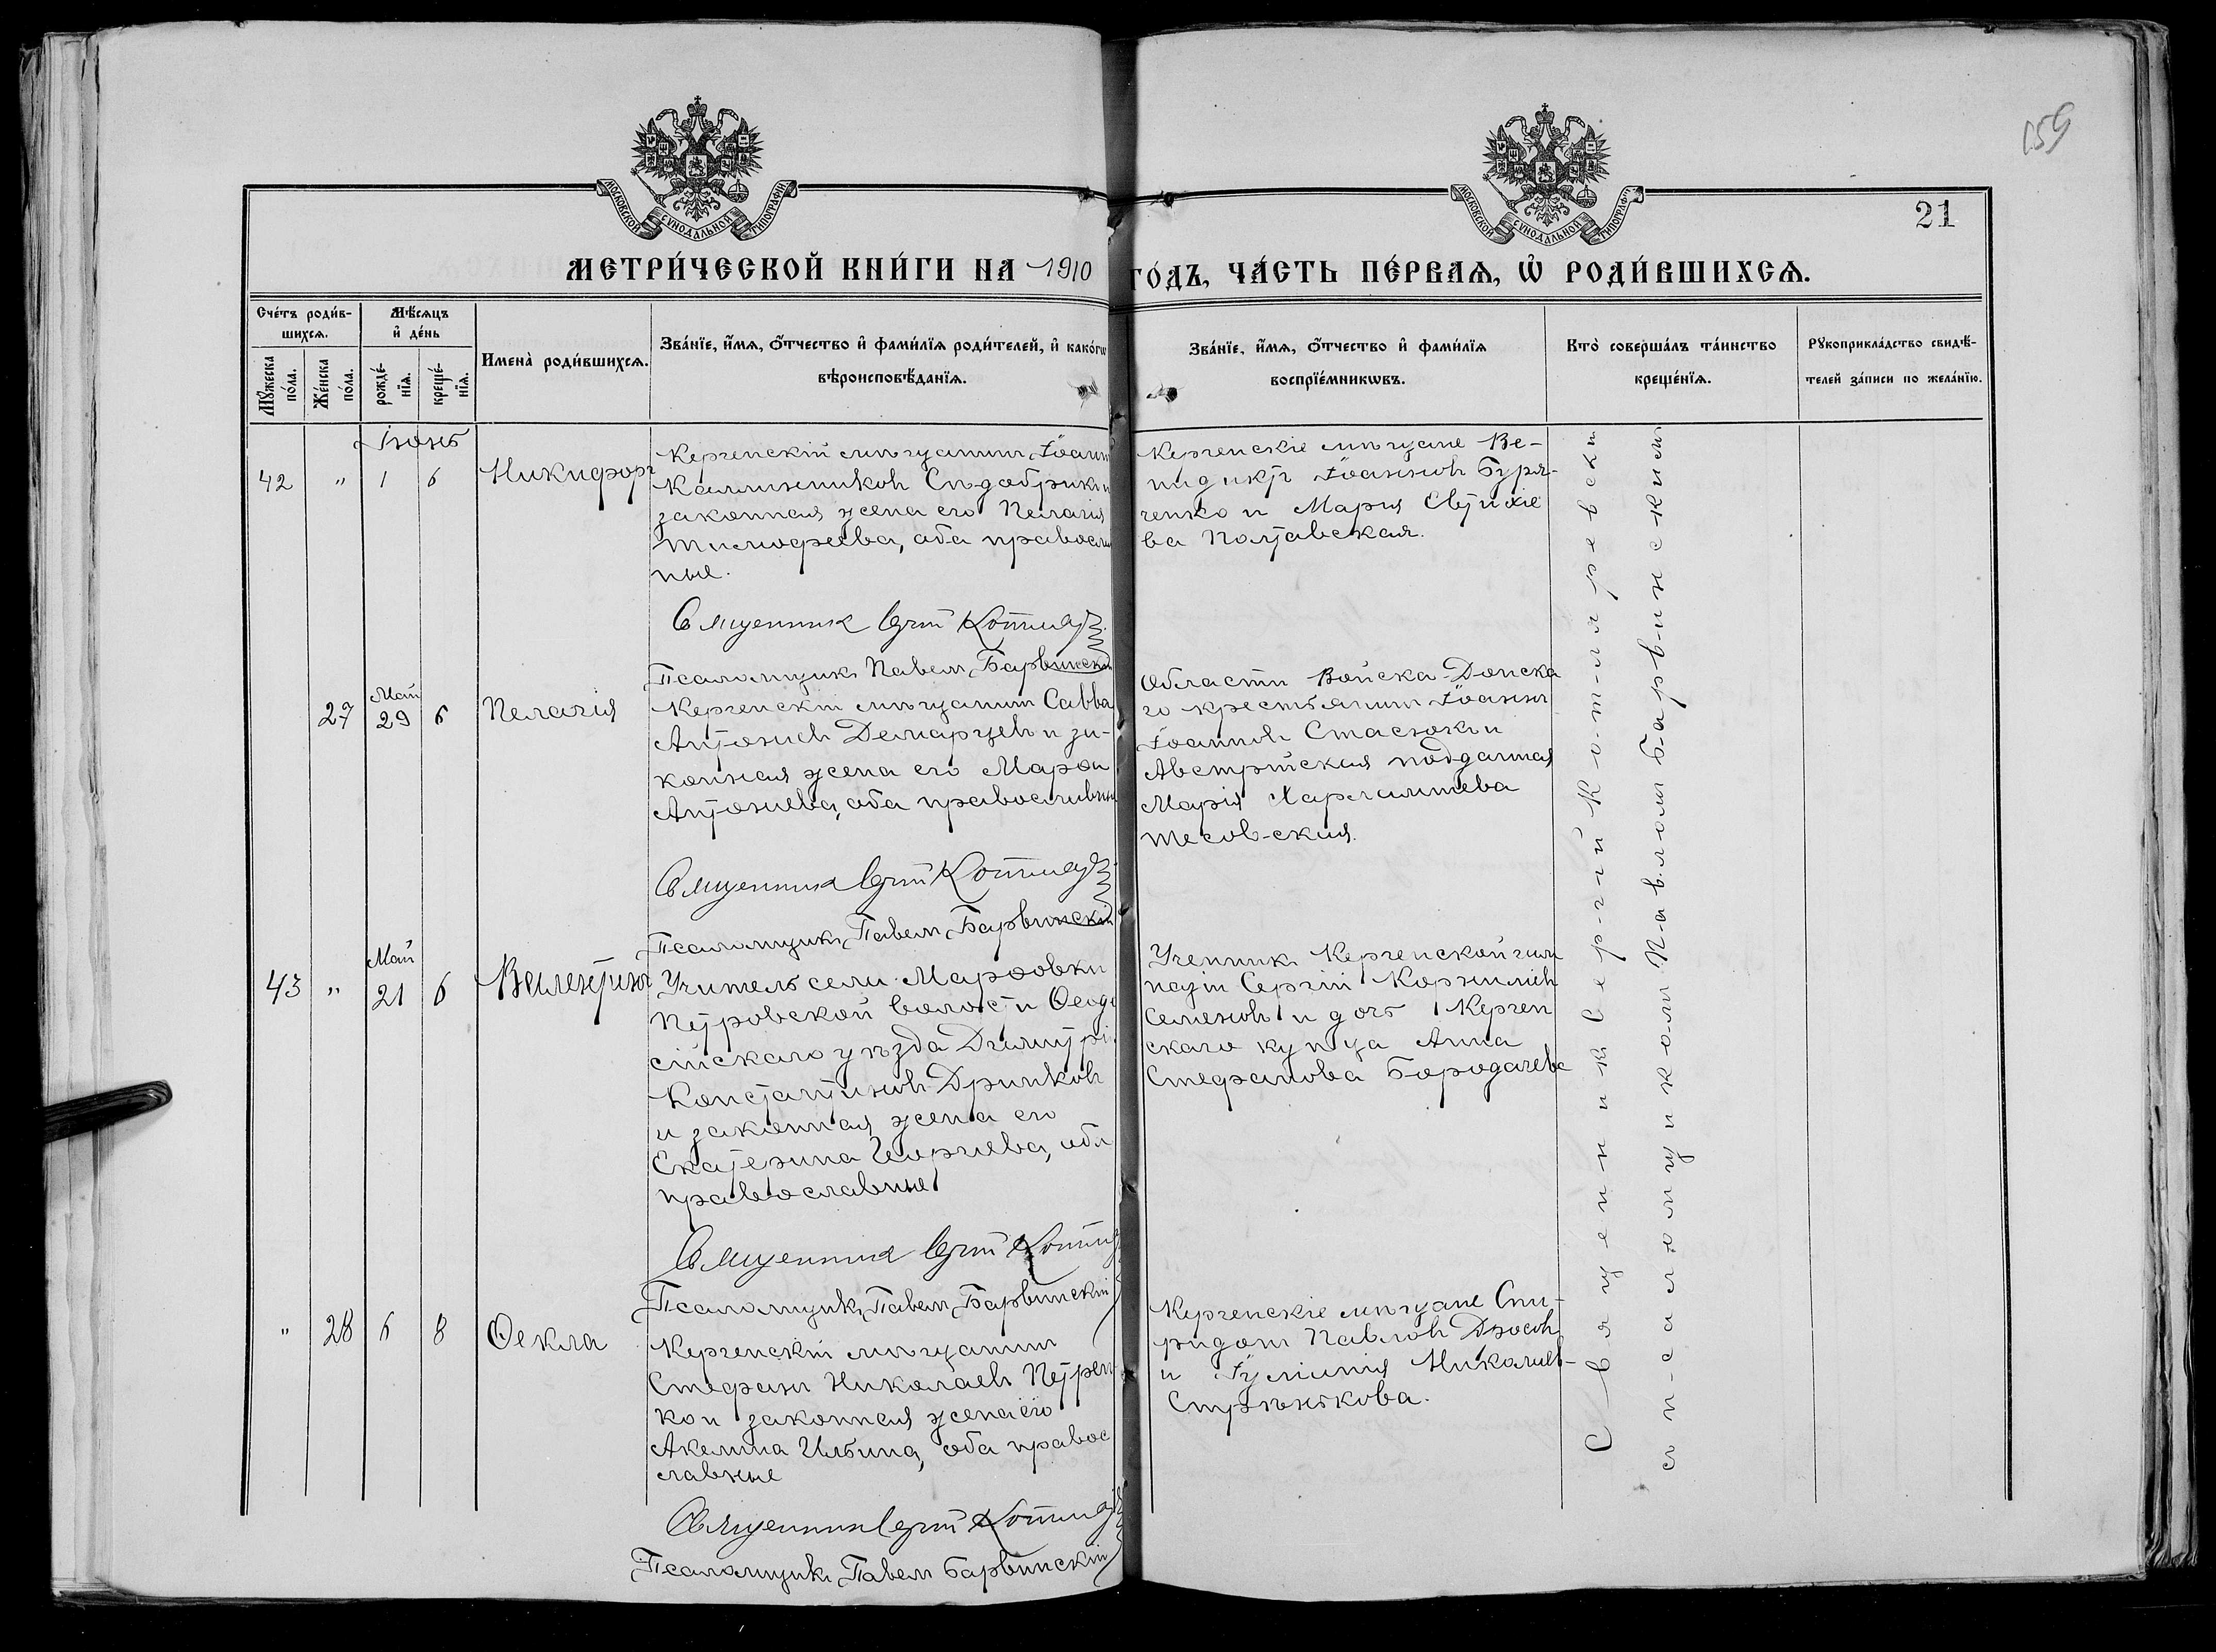 159
МОСКОВСКОЙ СУНОДАЛЬНОЙ ТИПОГРАФІИ
МОСКОВСКОЙ СУНОДАЛЬНОЙ ТИПОГРАФІИ
21
МЕТРИ́ЧЕСКОЙ КНИ́ГИ НА 1910 ГО́ДЪ, ЧА́СТЬ ПЕ́РВАѦ, Ѡ҆ РОДИ́ВШИХСѦ.
Сче́тъ роди́в-
шихсѧ.
Мѣ́сѧцъ
и҆ де́нь
Мꙋ́жеска
по́ла.
Же́нска
по́ла.
рожде́-
нїѧ.
креще́-
нїѧ.
Имена̀ роди́вшихсѧ.
Зва́нїе, и҆́мѧ, ѻ҆́тчество и҆ фами́лїѧ роди́телей, и҆ како́гѡ
вѣроисповѣ́данїѧ.
Зва́нїе, и҆́мѧ, ѻ҆́тчество и҆ фами́лїѧ
воспрїе́мникѡвъ.
Кто̀ соверша́лъ та́инство
креще́нїѧ.
Рꙋкоприкла́дство свидѣ́-
телей за́писи по жела́нїю.
Іюнь
42 " 1 6 Никифоръ
Керченскій мѣщанинъ Іоаннъ
Каллиниковъ и
законная жена его Пелагія
Тимофеева, оба православ
ные.
Священник Сергій Котляр
Псаломщикъ Павелъ Барвинскій
Керченскіе мѣщане Ве-
недиктъ Іоанновъ Буря-
ченко и Марія Евтихіе
ва Полтавская.
Май
27 29 6 Пелагія
Керченскій мѣщанинъ Савва
Антоніевъ Демарцевъ и за-
конная жена его Марѳа
Антониева, оба православные
Священник Сергій Котляр
Псаломщикъ Павелъ Барвинскій
Области Войска-Донска
го крестьянинъ Іоаннъ
Іоанновъ Стасюкъ и
Австрійская подданная
Марія Харлампиева
Тесов-ская.
Май
43 " 21 6 Валентинъ
Учитель села Марѳовки
Петровской волости Ѳеодо
сійскаго уѣзда Димитрій
Константиновъ Дринковъ
и законная жена его
Екатерина Георгиева, оба
православные
Священник Сергій Котляр
Псаломщикъ Павелъ Барвинскій
Ученикъ Керченской гим
назіи Сергій Корниліевъ
Семеновъ и дочь Керчен
скаго купца Анна
Стефанова Бородачева
" 28 6 8 Ѳекла
Керченскій мѣщанинъ
Стефанъ Николаевъ Петрен
ко и законная жена его
Акелина Ильина, оба правос
славные
Священник Сергій Котляр
Псаломщикъ Павелъ Барвинскій
Керченскіе мѣщане Спи-
ридонъ Павловъ
и Іуліанія Николаев-
Стрѣнькова.
Священникъ Сергій Котляревскій
съ псаломщикомъ Павломъ Барвинскимъ